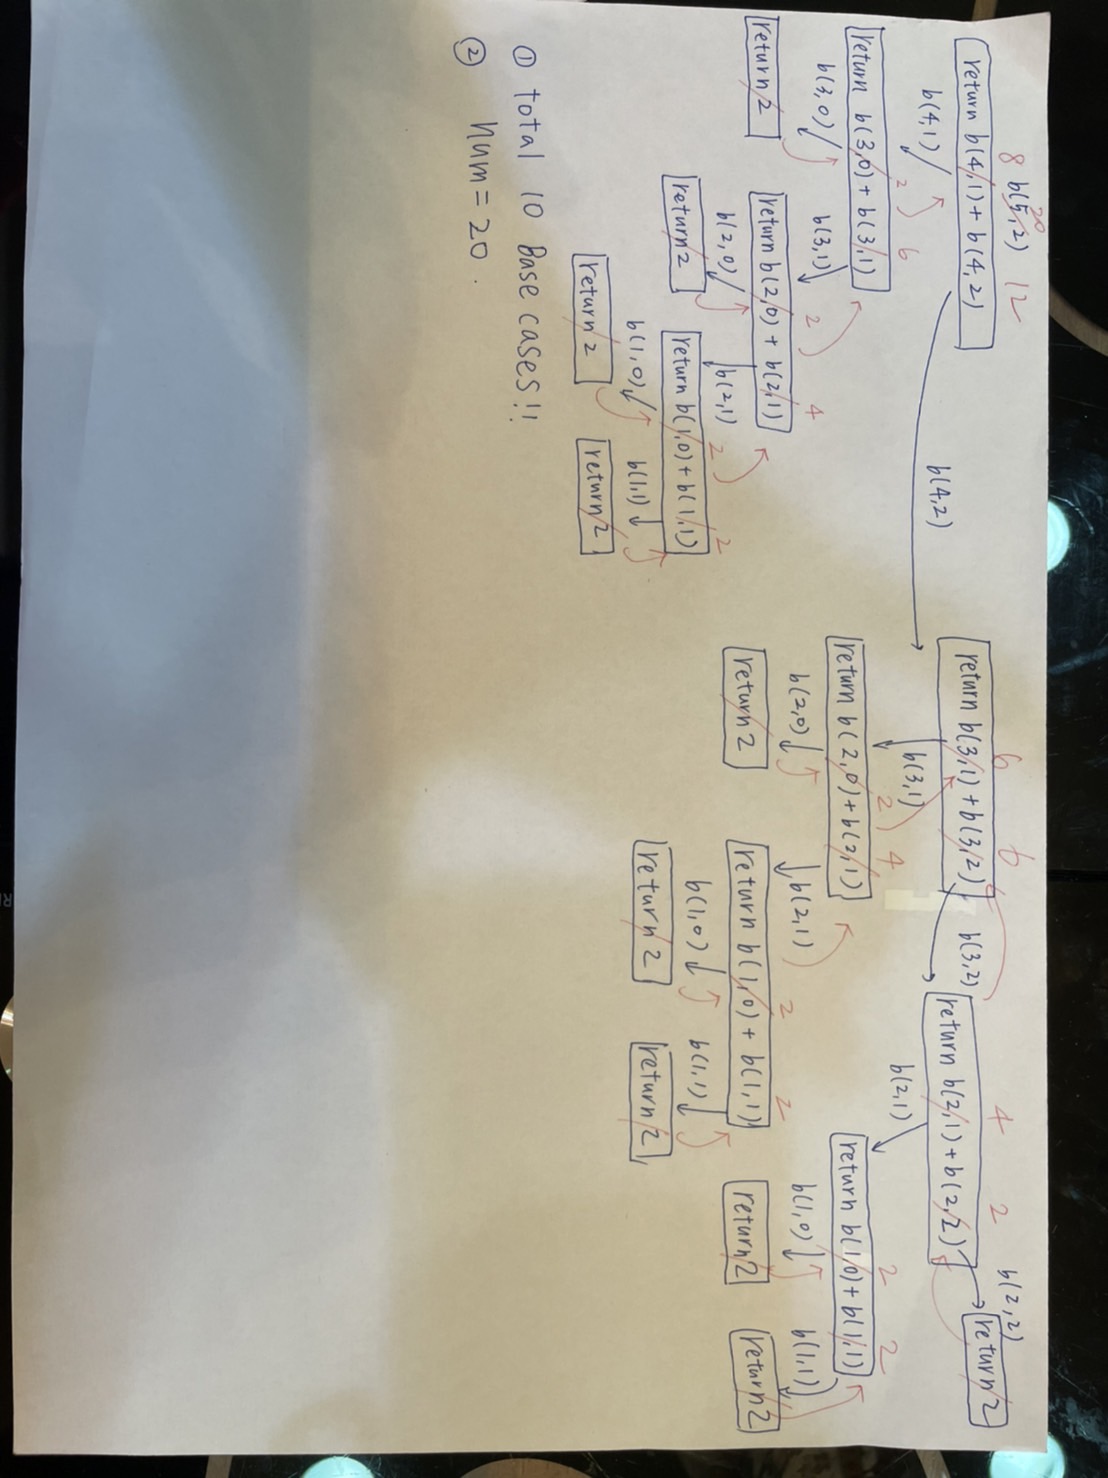 20
8 b(5,2) 12
return b(4,1)+ b(4,2)
b(4,1)
b(4,2)
2 6
return b(3,0)+ b(3,1)
b(3,0)
b(3,1)
2 4
return 2
return b(2,0) + b(2,1)
b(2,0)
b(2,1)
2 2
return 2
return b(1,0)+ b(1,1)
b(1,0)
b(1,1)
return 2
return 2
6 6
return b(3,1) + b(3,2)
b(3,2)
b(3,1)
2 4
return b(2,0)+ b(2,1)
b(2,0)
b(2,1)
2 2
return 2
return b(1,0) + b(1,1)
b(1,0)
b(1,1)
return 2
return 2
4 2
b(2,2)
return 2
return b(2,1)+ b(2,2)
b(2,1)
2 2
return b(1,0)+ b(1,1)
b(1,0)
b(1,1)
return 2
return 2
① total 10 Base cases!!
② num = 20 .